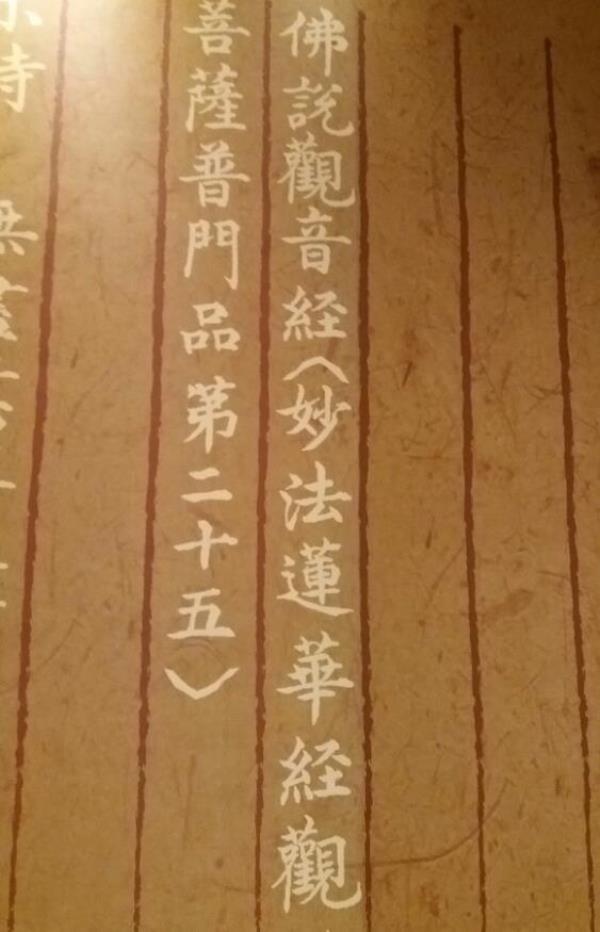 佛說觀音経〈妙法蓮華経觀
菩薩普門品第二十五〉